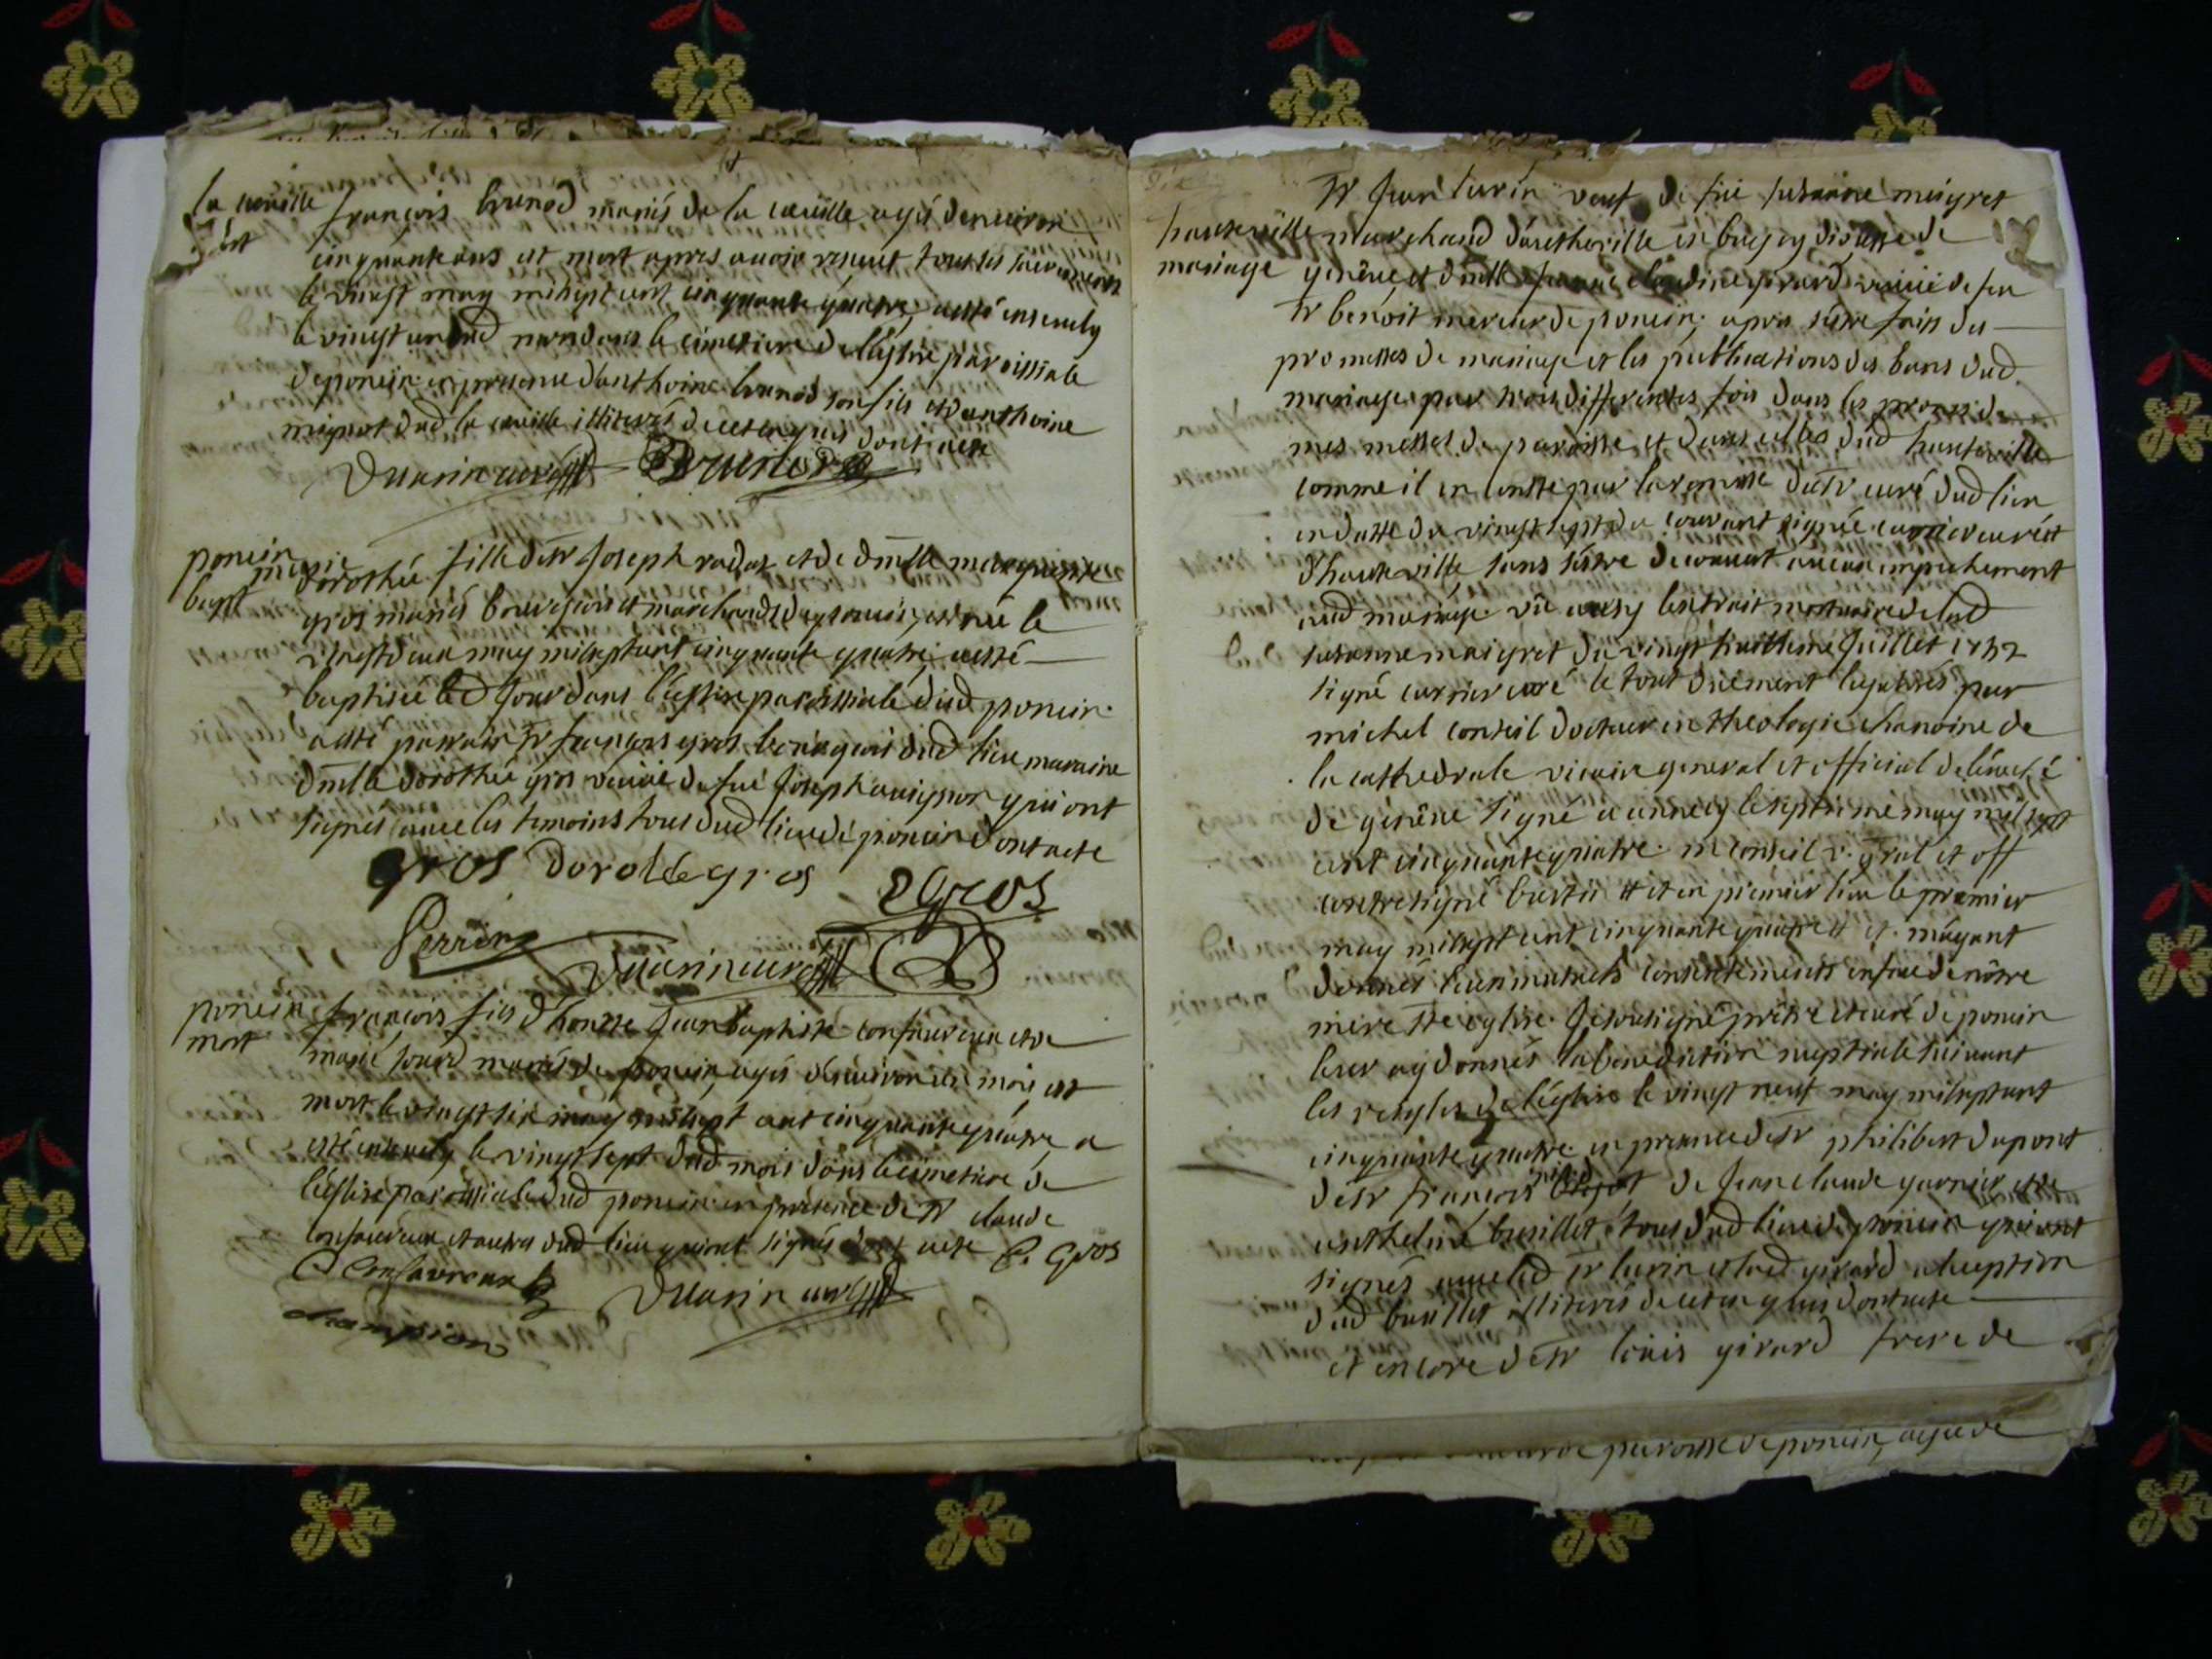 la cueille françois brunod mariés de la cueille agés denviron
mort cinquante ans est mort apres avoir reseut tous les sacrements
le vingt may milsept cent cinquante quatre, a esté ensevely
le vingt un dud mois dans le cimetiere de léglise paroissiale
deponcin en presence danthoine brunod son fils et danthoine
mignot dud la cueille illiterés de ce enquis dont acte
Duarin curé Brunod
poncin marie dorothée fille de sr Joseph rodet et de dmlle marguerite
bapt gros mariés bourgeois et marchands de poncin, est née le
vingt deux may milseptcent cinquante quatre, a esté
baptisée led Jour dans léglise paroissiale dud poncin
a esté parrain sr françois gros bourgeois dud lieu maraine
dmlle dorothée gros veuve de feu Joseph qui ont
signés avec les temoins tous dud lieu de poncin dont acte
gros Doroteé gros Gros
Perrin
Duarin curé
poncin françois fils dhonste Jean baptiste confavreux et de
mort marie mariés de poncin, agés denviron six mois est
mort le vingt six may milsept cent cinquante quatre, a
esté ensevely le vingt sept dud mois dans le cimetiere de
léglise paroissiale dud poncin en presence de sr claude
confavreux et autres dud lieu qui ont signés dont acte C. Gros
C Confavreux Duarin curé
champion
Sr Jean lurin veuf de feüe susanne meigret
hauteville marchand d'hauteville en bugey diocesse de
mariage genêve, et dmlle Jeanne claudine girard veuve de feu
sr benoit mercier de poncin, apres sestre fais des
promesses de mariage et les publications des bans dud
mariage par trois differentes fois dans les prones de
mes messes de paroisse et dans celles dud hauteville
comme il en conste par la remisse du sr curé dud lieu
en datte du vingt sept du courant signée carrier curé
d'hauteville sans sestre decouvert aucun empechement
aud mariage. vû aussy lextrait mortuaire de lad
susanne maigret du vingt huittieme Juillet 1752
signé carrier curé le tout düement legalisés par
michel conseil docteur en theologie chanoine de
la cathedrale vicaire general et official de lévêché
de genêve signé a annecy le septieme may mil sept
cent cinquante quatre. m conseil v. gral et off
contresigné et en premier lieu le premier
may milsept cent cinquante quatre et mayant
donnés leurs mutuels consentements en face de nôtre
mere ste eglise. Je soussigné prêtre et curé de poncin
leur ay donnés la benediction nuptiale suivant
les reigles de léglise le vingt neuf may milseptcent
cinquante quatre. en presence de sr philibert dupont
de sr françois de Jean claude garnier et de
anthelme busillet tous dud lieu de poncin qui ont
signés avec led sr lurin et lad girard a lexeption
dud busillet illiterés de ce enquis dont acte
et encore de sr loüis girard frere de
paroisse de poncin, agée de